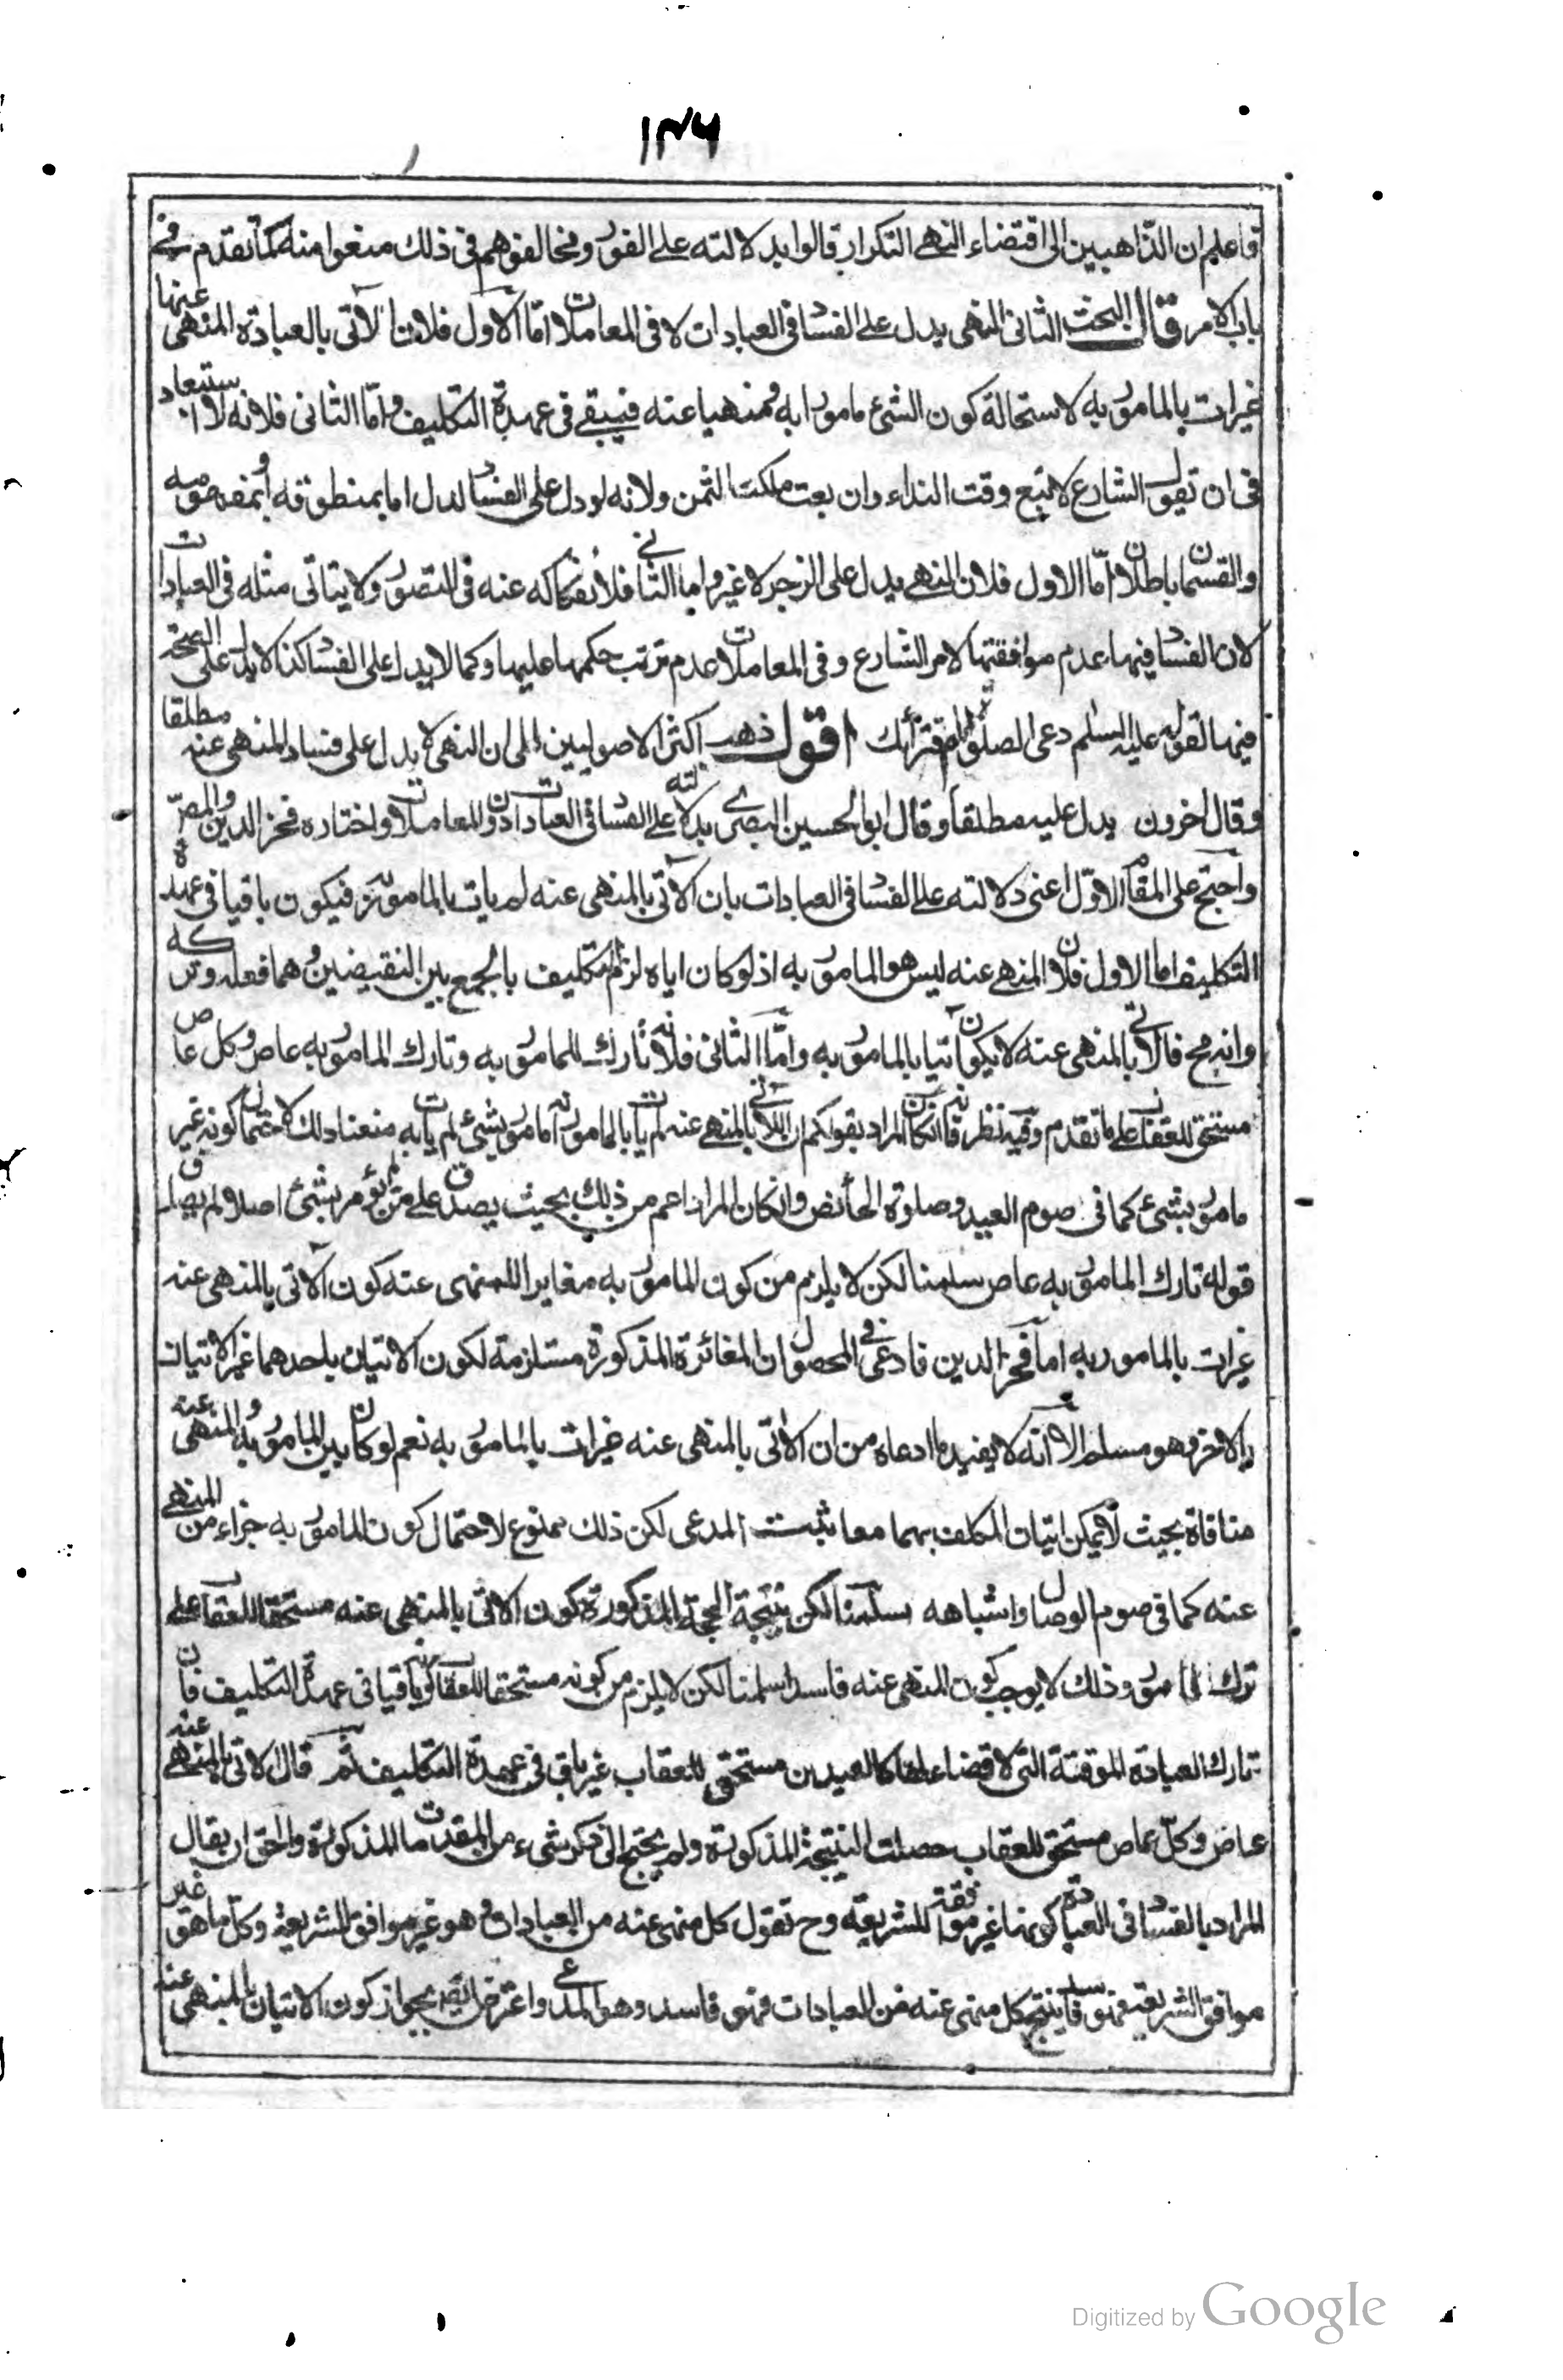 ١٣٦
فاعلم ان الذاهبين الى اقتضاء النهى التكرار قالوا بدلالته على الفور ومخالفوهم فى ذلك منعوا منه كما تقدم فى
باب الامر قال البحث الثانى النهى يدل على الفساد فى العبادات لا فى المعاملات امّا الاول فلان الآتى بالعبادة المنهى عنها
غير ات بالمامور به لاستحالة كون الشئ مامورا به ومنهيا عنه فيبقى فى عهدة التكليف وامّا الثانى فلانه لا استبعاد
فى ان تقول الشارع لا تبع وقت النداء وان بعت ملكت الثمن ولانه لو دل على الفساد لدل اما بمنطوقه او بمفهومه
والقسمان باطلان امّا الاول فلان النهى يدل على الزجر لا غير واما الثانى فلانفكاكه عنه فى التصور ولا يتاتى مثله فى العبادات
لان الفساد فيها عدم موافقتها لامر الشارع وفى المعاملات عدم ترتب حكمها عليها وكما لا يدل على الفساد كذا لا يدل على الصحة
فيهما لقوله عليه السلم دعى الصلوة ايام اقرائك اقول ذهب اكثر الاصوليين الى ان النهى لا يدل على فساد المنهى عنه مطلقا
وقال اخرون يدل عليه مطلقا وقال ابو الحسين البصرى بدلالته على الفساد فى العبادات دون المعاملات واختاره فخر الدين والمصر
واحتج على المقام الاول اعنى دلالته على الفساد فى العبادات بان الآتى بالمنهى عنه لم يات بالمامور به فيكون باقيا فى عهدة
التكليف اما الاول فلان المنهى عنه ليس هو المامور به اذ لو كان اياه لزم التكليف بالجمع بين النقيضين وهما فعله وتركه
وانه مح فالاتى بالمنهى عنه لا يكون آتيا بالمامور به وامّا الثانى فلانه تارك للمامور به وتارك المامور به عاص وكل عاص
مستحق للعقاب على ما تقدم وفيه نظر فانه ان كان المراد بقولكم ان الاتى بالمنهى عنه لم يات بالمامور به انه مامور بشئ لم يات به منعنا ذلك لاحتمال كونه غير
مامور بشئ كما فى صوم العيد وصلوة الحائض وان كان المراد اعم من ذلك بحيث يصدق على من لم يؤمر بشئ اصلا لم يصدق
قوله تارك المامور به عاص سلمنا لكن لا يلزم من كون المامور به مغايرا للمنهى عنه كون الآتى بالمنهى عنه
غير ات بالمامور به اما فخر الدين فادعى فى المحصول ان المغائرة المذكورة مستلزمة لكون الاتيان باحدهما غير الاتيان
بالاخر وهو مسلم الا انه لا يفيد ما ادعاه من ان الاتى بالمنهى عنه غير ات بالمامور به نعم لو كان بين المامور به والمنهى عنه
منافاة بحيث لا يمكن اتيان المكلف بهما معا يثبت المدعى لكن ذلك ممنوع لاحتمال كون المامور به جزاء من المنهى
عنه كما فى صوم الوصال واشباهه سلمنا لكن نتيجة الحجة المذكورة كون الاتى بالمنهى عنه مستحقا للعقاب على
ترك المامور وذلك لا يوجب كون المنهى عنه فاسدا سلمنا لكن لا يلزم من كونه مستحقا للعقاب كونه باقيا فى عهدة التكليف فان
تارك العبادة الموقتة التى لا قضاء لها كالعيدين مستحق للعقاب غير باق فى عهدة التكليف ثم قال الاتى بالمنهى عنه
عاص وكل عاص مستحق للعقاب حصلت النتيجة المذكورة ولم يحتج الى ذكر شىء من المقدمات المذكورة والحق ان يقال
المراد بالفساد فى العبادة كونها غير موافقة للشريعة وح تقول كل منهى عنه من العبادات فهو غير موافق للشريعة وكل ما هو غير
موافق للشريعة فهو فاسد ينتج كل منهى عنه من العبادات فهو فاسد وهو المدعى واعترض ايضا بجواز كون الاتيان بالمنهى عنه
Digitized by Google